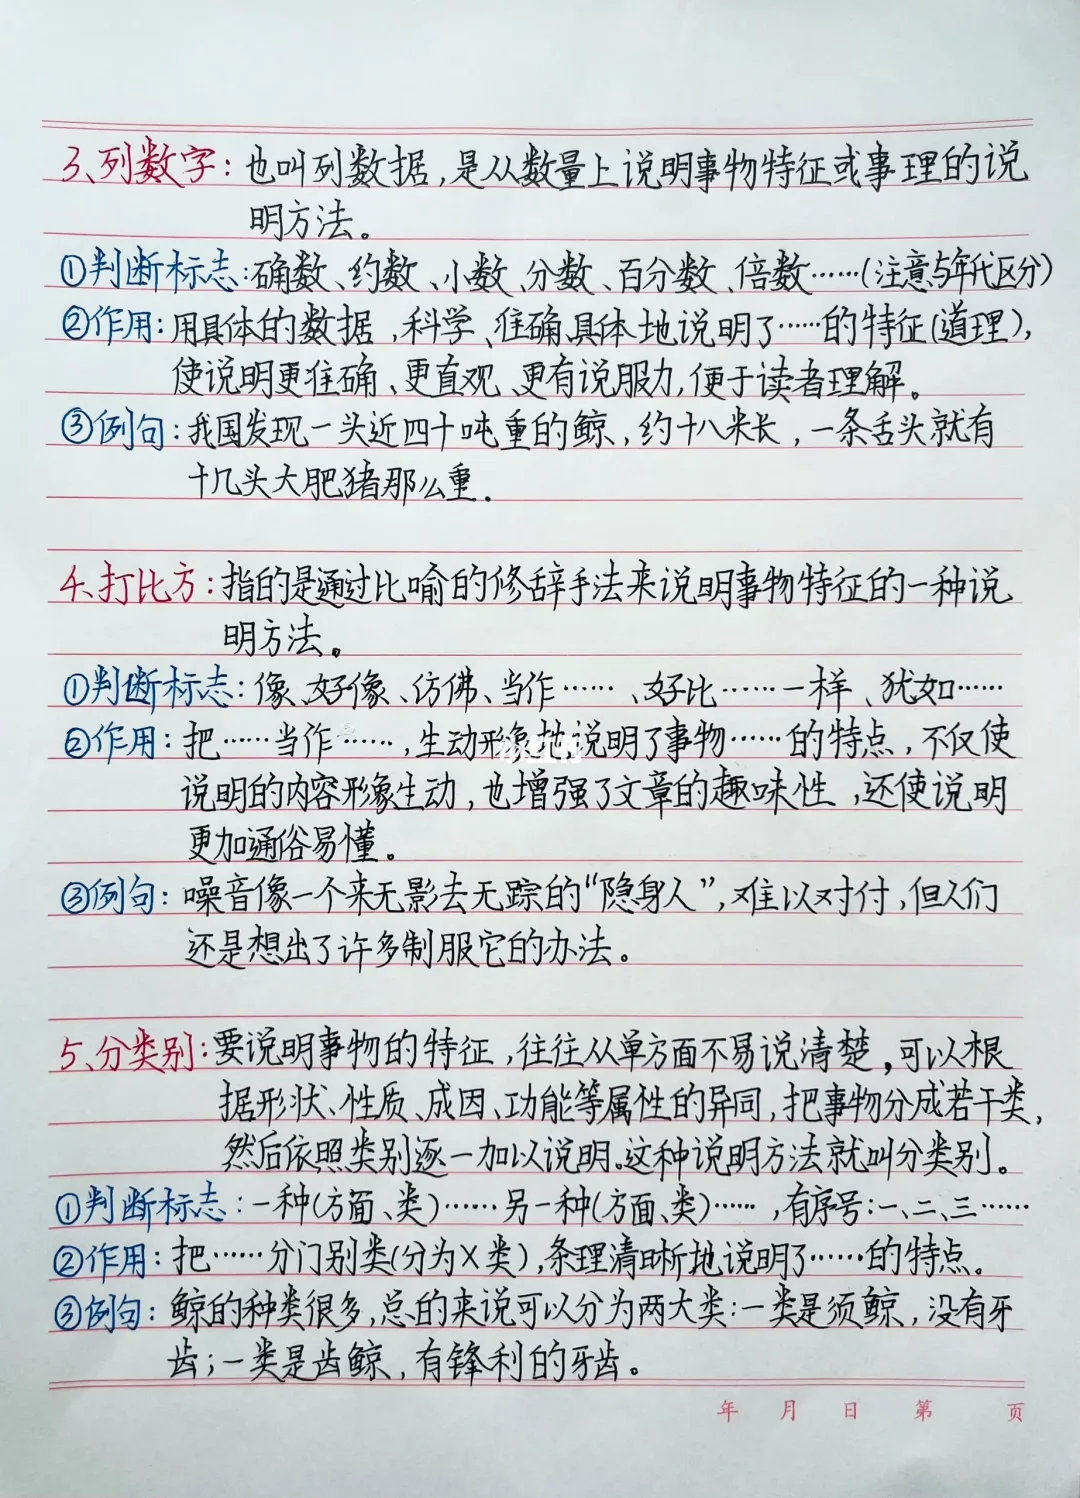 3、列数字：也叫列数据，是从数量上说明事物特征或事理的说
明方法。
①判断标志：确数、约数、小数、分数、百分数、倍数……(注意与年代区分)
②作用：用具体的数据，科学、准确具体地说明了……的特征(道理)，
使说明更准确、更直观、更有说服力，便于读者理解。
③例句：我国发现一头近四十吨重的鲸，约十八米长，一条舌头就有
十几头大肥猪那么重．
4、打比方：指的是通过比喻的修辞手法来说明事物特征的一种说
明方法。
①判断标志：像、好像、仿佛、当作……、好比……一样、犹如……
②作用：把……当作……，生动形象地说明了事物……的特点，不仅使
说明的内容形象生动，也增强了文章的趣味性，还使说明
更加通俗易懂。
③例句：噪音像一个来无影去无踪的“隐身人”，难以对付，但人们
还是想出了许多制服它的办法。
5、分类别：要说明事物的特征，往往从单方面不易说清楚，可以根
据形状、性质、成因、功能等属性的异同，把事物分成若干类，
然后依照类别逐一加以说明。这种说明方法就叫分类别。
①判断标志：一种(方面、类)……另一种(方面、类)……，有序号：一、二、三……
②作用：把……分门别类(分为X类)，条理清晰地说明了……的特点。
③例句：鲸的种类很多，总的来说可以分为两大类：一类是须鲸，没有牙
齿；一类是齿鲸，有锋利的牙齿。
年 月 日 第 页